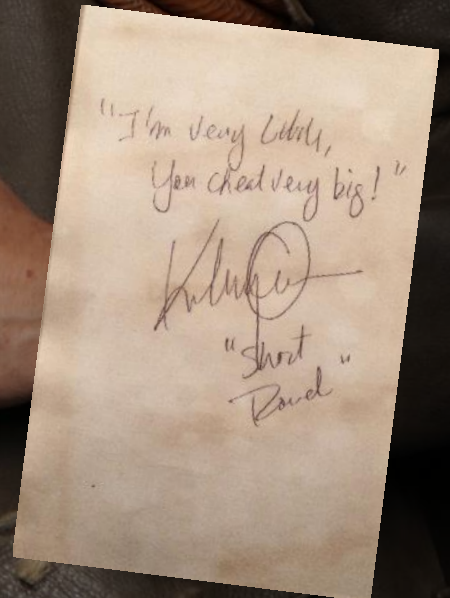 "I'm very little,
You cheat very big!"
"Short
Round"